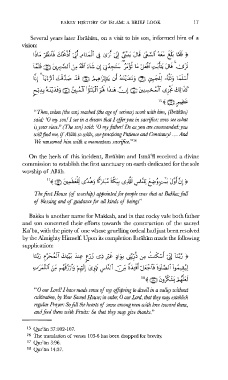 EARLY HISTORY OF ISLAM: A BRIEF LOOK 17
Several years later Ibrāhīm, on a visit to his son, informed him of a
vision:
﴿ فَلَمَّا بَلَغَ مَعَهُ السَّعْيَ قَالَ يَا بُنَيَّ إِنِّي أَرَى فِي الْمَنَامِ أَنِّي أَذْبَحُكَ فَانظُرْ مَاذَا
تَرَى قَالَ يَا أَبَتِ افْعَلْ مَا تُؤْمَرُ سَتَجِدُنِي إِن شَاءَ اللَّهُ مِنَ الصَّابِرِينَ فَلَمَّا
أَسْلَمَا وَتَلَّهُ لِلْجَبِينِ وَنَادَيْنَاهُ أَن يَا إِبْرَاهِيمُ قَدْ صَدَّقْتَ الرُّؤْيَا إِنَّا
كَذَلِكَ نَجْزِي الْمُحْسِنِينَ إِنَّ هَذَا لَهُوَ الْبَلَاءُ الْمُبِينُ وَفَدَيْنَاهُ بِذِبْحٍ
عَظِيمٍ ﴾
"Then, when (the son) reached (the age of serious) work with him, (Ibrāhīm)
said: 'O my son! I see in a dream that I offer you in sacrifice: now see what
is your view.' (The son) said: 'O my father! Do as you are commanded; you
will find me, if Allāh so wills, one practising Patience and Constancy!' ... And
We ransomed him with a momentous sacrifice."16
On the heels of this incident, Ibrāhīm and Ismā'īl received a divine
commission to establish the first sanctuary on earth dedicated for the sole
worship of Allāh.
﴿ إِنَّ أَوَّلَ بَيْتٍ وُضِعَ لِلنَّاسِ لَلَّذِي بِبَكَّةَ مُبَارَكًا وَهُدًى لِّلْعَالَمِينَ ﴾17
"The first House (of worship) appointed for people was that at Bakka; full
of blessing and of guidance for all kinds of beings"
Bakka is another name for Makkah, and in that rocky vale both father
and son concerted their efforts towards the construction of the sacred
Ka'ba, with the piety of one whose gruelling ordeal had just been resolved
by the Almighty Himself. Upon its completion Ibrāhīm made the following
supplication:
﴿ رَّبَّنَا إِنِّي أَسْكَنتُ مِن ذُرِّيَّتِي بِوَادٍ غَيْرِ ذِي زَرْعٍ عِندَ بَيْتِكَ الْمُحَرَّمِ رَبَّنَا
لِيُقِيمُوا الصَّلَاةَ فَاجْعَلْ أَفْئِدَةً مِّنَ النَّاسِ تَهْوِي إِلَيْهِمْ وَارْزُقْهُم مِّنَ الثَّمَرَاتِ
لَعَلَّهُمْ يَشْكُرُونَ ﴾18
"O our Lord! I have made some of my offspring to dwell in a valley without
cultivation, by Your Sacred House; in order, O our Lord, that they may establish
regular Prayer: So fill the hearts of some among men with love toward them,
and feed them with Fruits: So that they may give thanks."
15 Qur'ān 37:102-107.
16 The translation of verses 103-6 has been dropped for brevity.
17 Qur'ān 3:96.
18 Qur'ān 14:37.